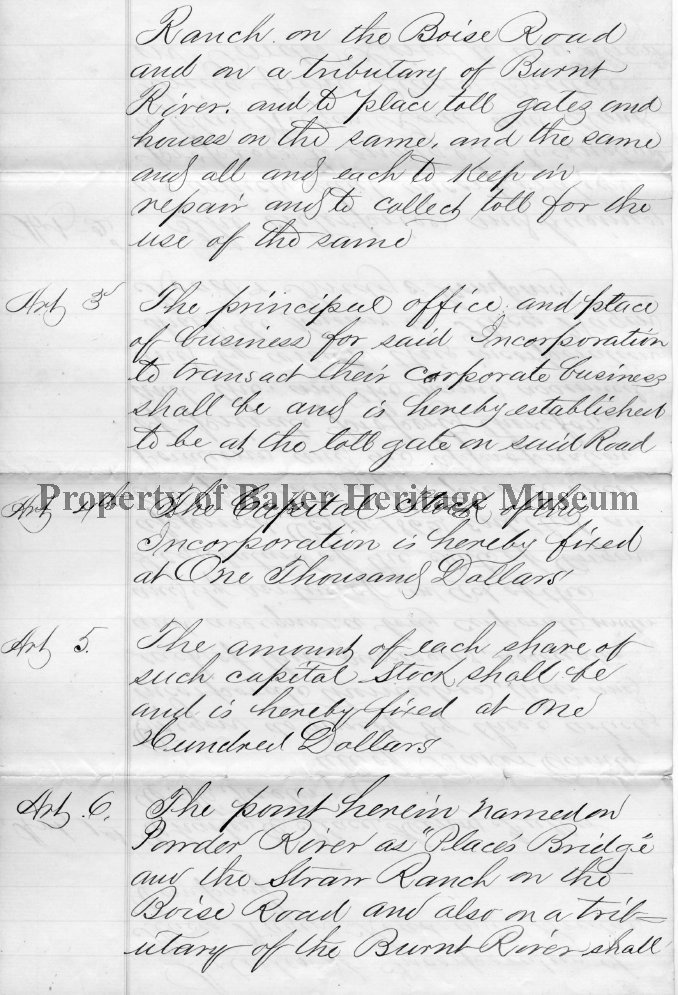 Ranch on the Boise Road
and on a tributary of Burnt
River. and to place toll gates and
houses on the same, and the same
and all and each to Keep in
repair and to collect toll for the
use of the same
Art 3d The principal office and place
of business for said Incorporation
to transact their corporate business
shall be and is hereby established
to be at the toll gate on said Road
Property of Baker Heritage Museum
Art 4th The Capital Stock of this
Incorporation is hereby fixed
at One Thousand Dollars
Art 5. The amount of each share of
such capital Stock shall be
and is hereby fixed at One
Hundred Dollars
Art. 6. The point herein named on
Powder River as "Place's Bridge"
and the Straw Ranch on the
Boise Road and also on a trib=
utary of the Burnt River shall